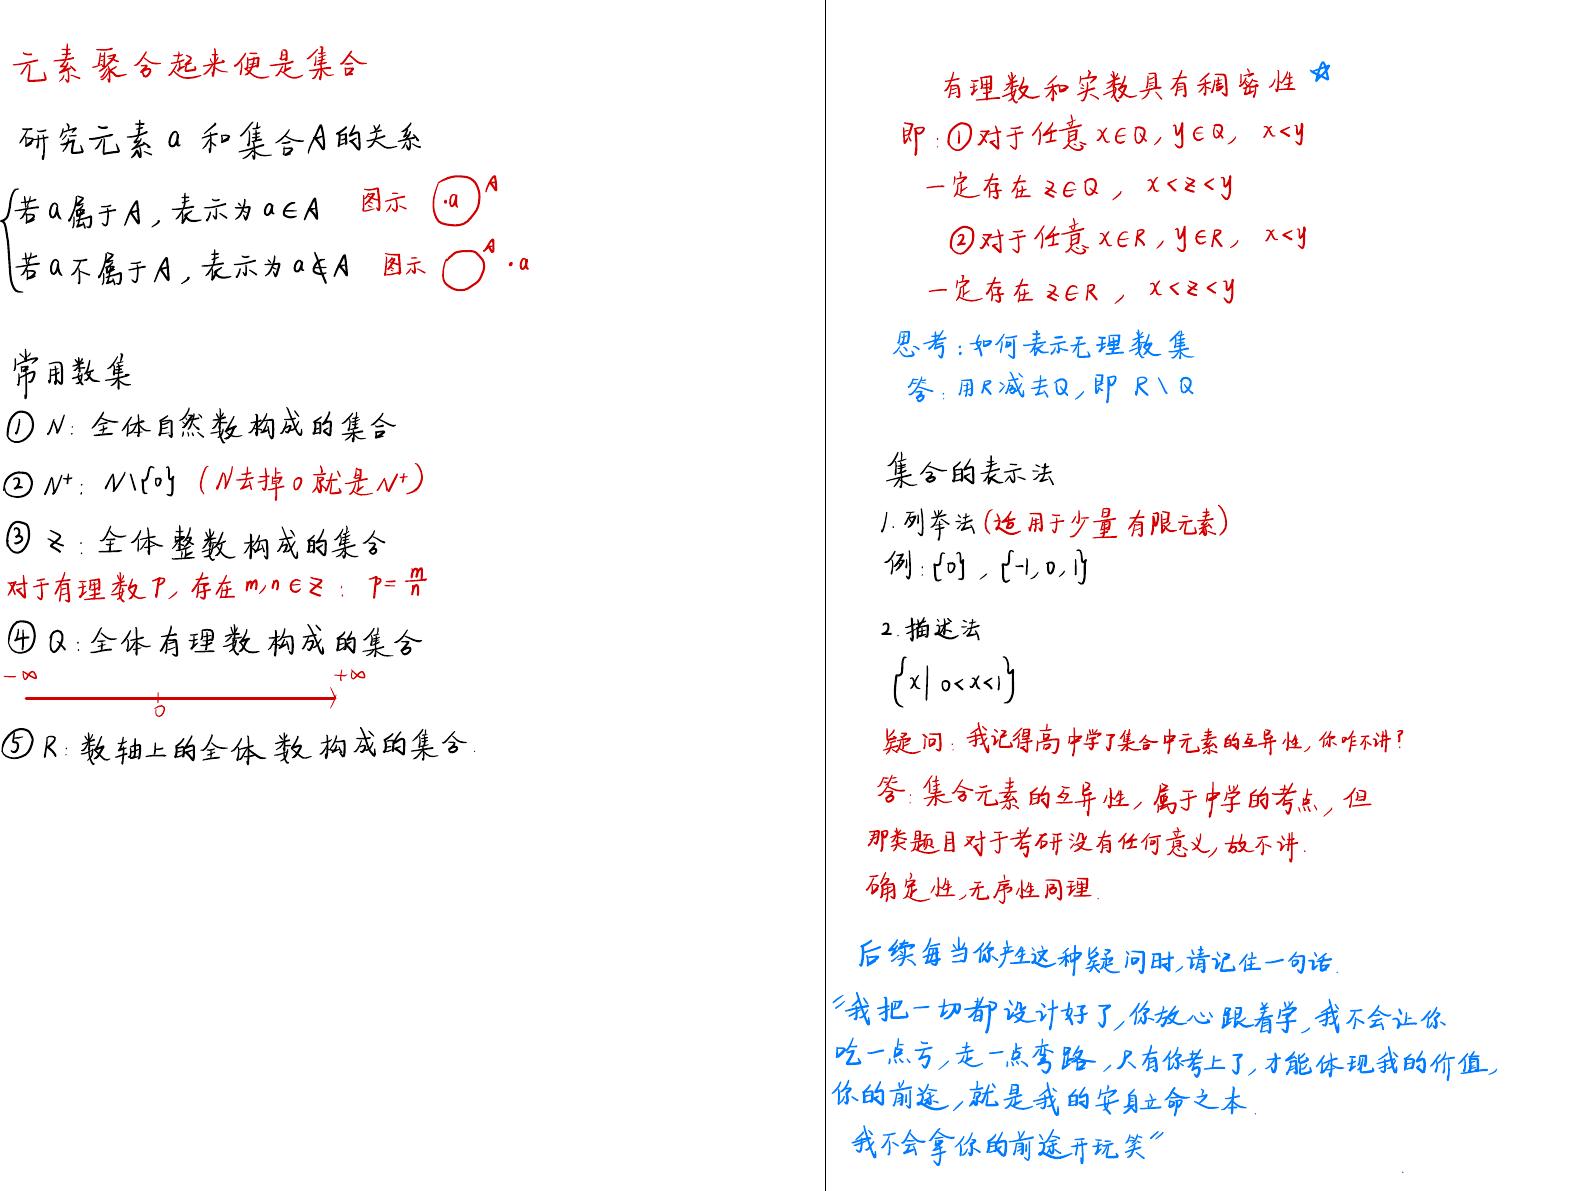 元素聚合起来便是集合
研究元素 a 和集合A的关系
若a属于A，表示为a∈A 图示 ·a A
若a不属于A，表示为a∉A 图示 A ·a
常用数集
① N：全体自然数构成的集合
② N⁺：N\{0}（N去掉0就是N⁺）
③ Z：全体整数构成的集合
对于有理数P，存在m,n∈Z：P=m/n
④ Q：全体有理数构成的集合
-∞ +∞
0
⑤ R：数轴上的全体数构成的集合.
有理数和实数具有稠密性☆
即：①对于任意x∈Q，y∈Q，x<y
一定存在z∈Q，x<z<y
②对于任意x∈R，y∈R，x<y
一定存在z∈R，x<z<y
思考：如何表示无理数集
答：用R减去Q，即 R\Q
集合的表示法
1.列举法（适用于少量有限元素）
例：{0}，{-1,0,1}
2.描述法
{x|0<x<1}
疑问：我记得高中学了集合中元素的互异性，你咋不讲？
答：集合元素的互异性，属于中学的考点，但
那类题目对于考研没有任何意义，故不讲.
确定性，无序性同理.
后续每当你产生这种疑问时，请记住一句话.
"我把一切都设计好了，你放心跟着学，我不会让你
吃一点亏，走一点弯路，只有你考上了，才能体现我的价值，
你的前途，就是我的安身立命之本.
我不会拿你的前途开玩笑"